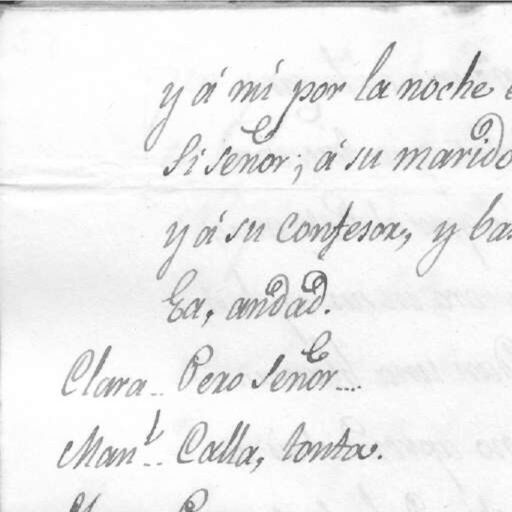 y á mí por la noche
Si señor; á su marido
y á su confesor, y
Ea, andad.
Clara.. Pero señor...
Man.l.. Calla, tonta.